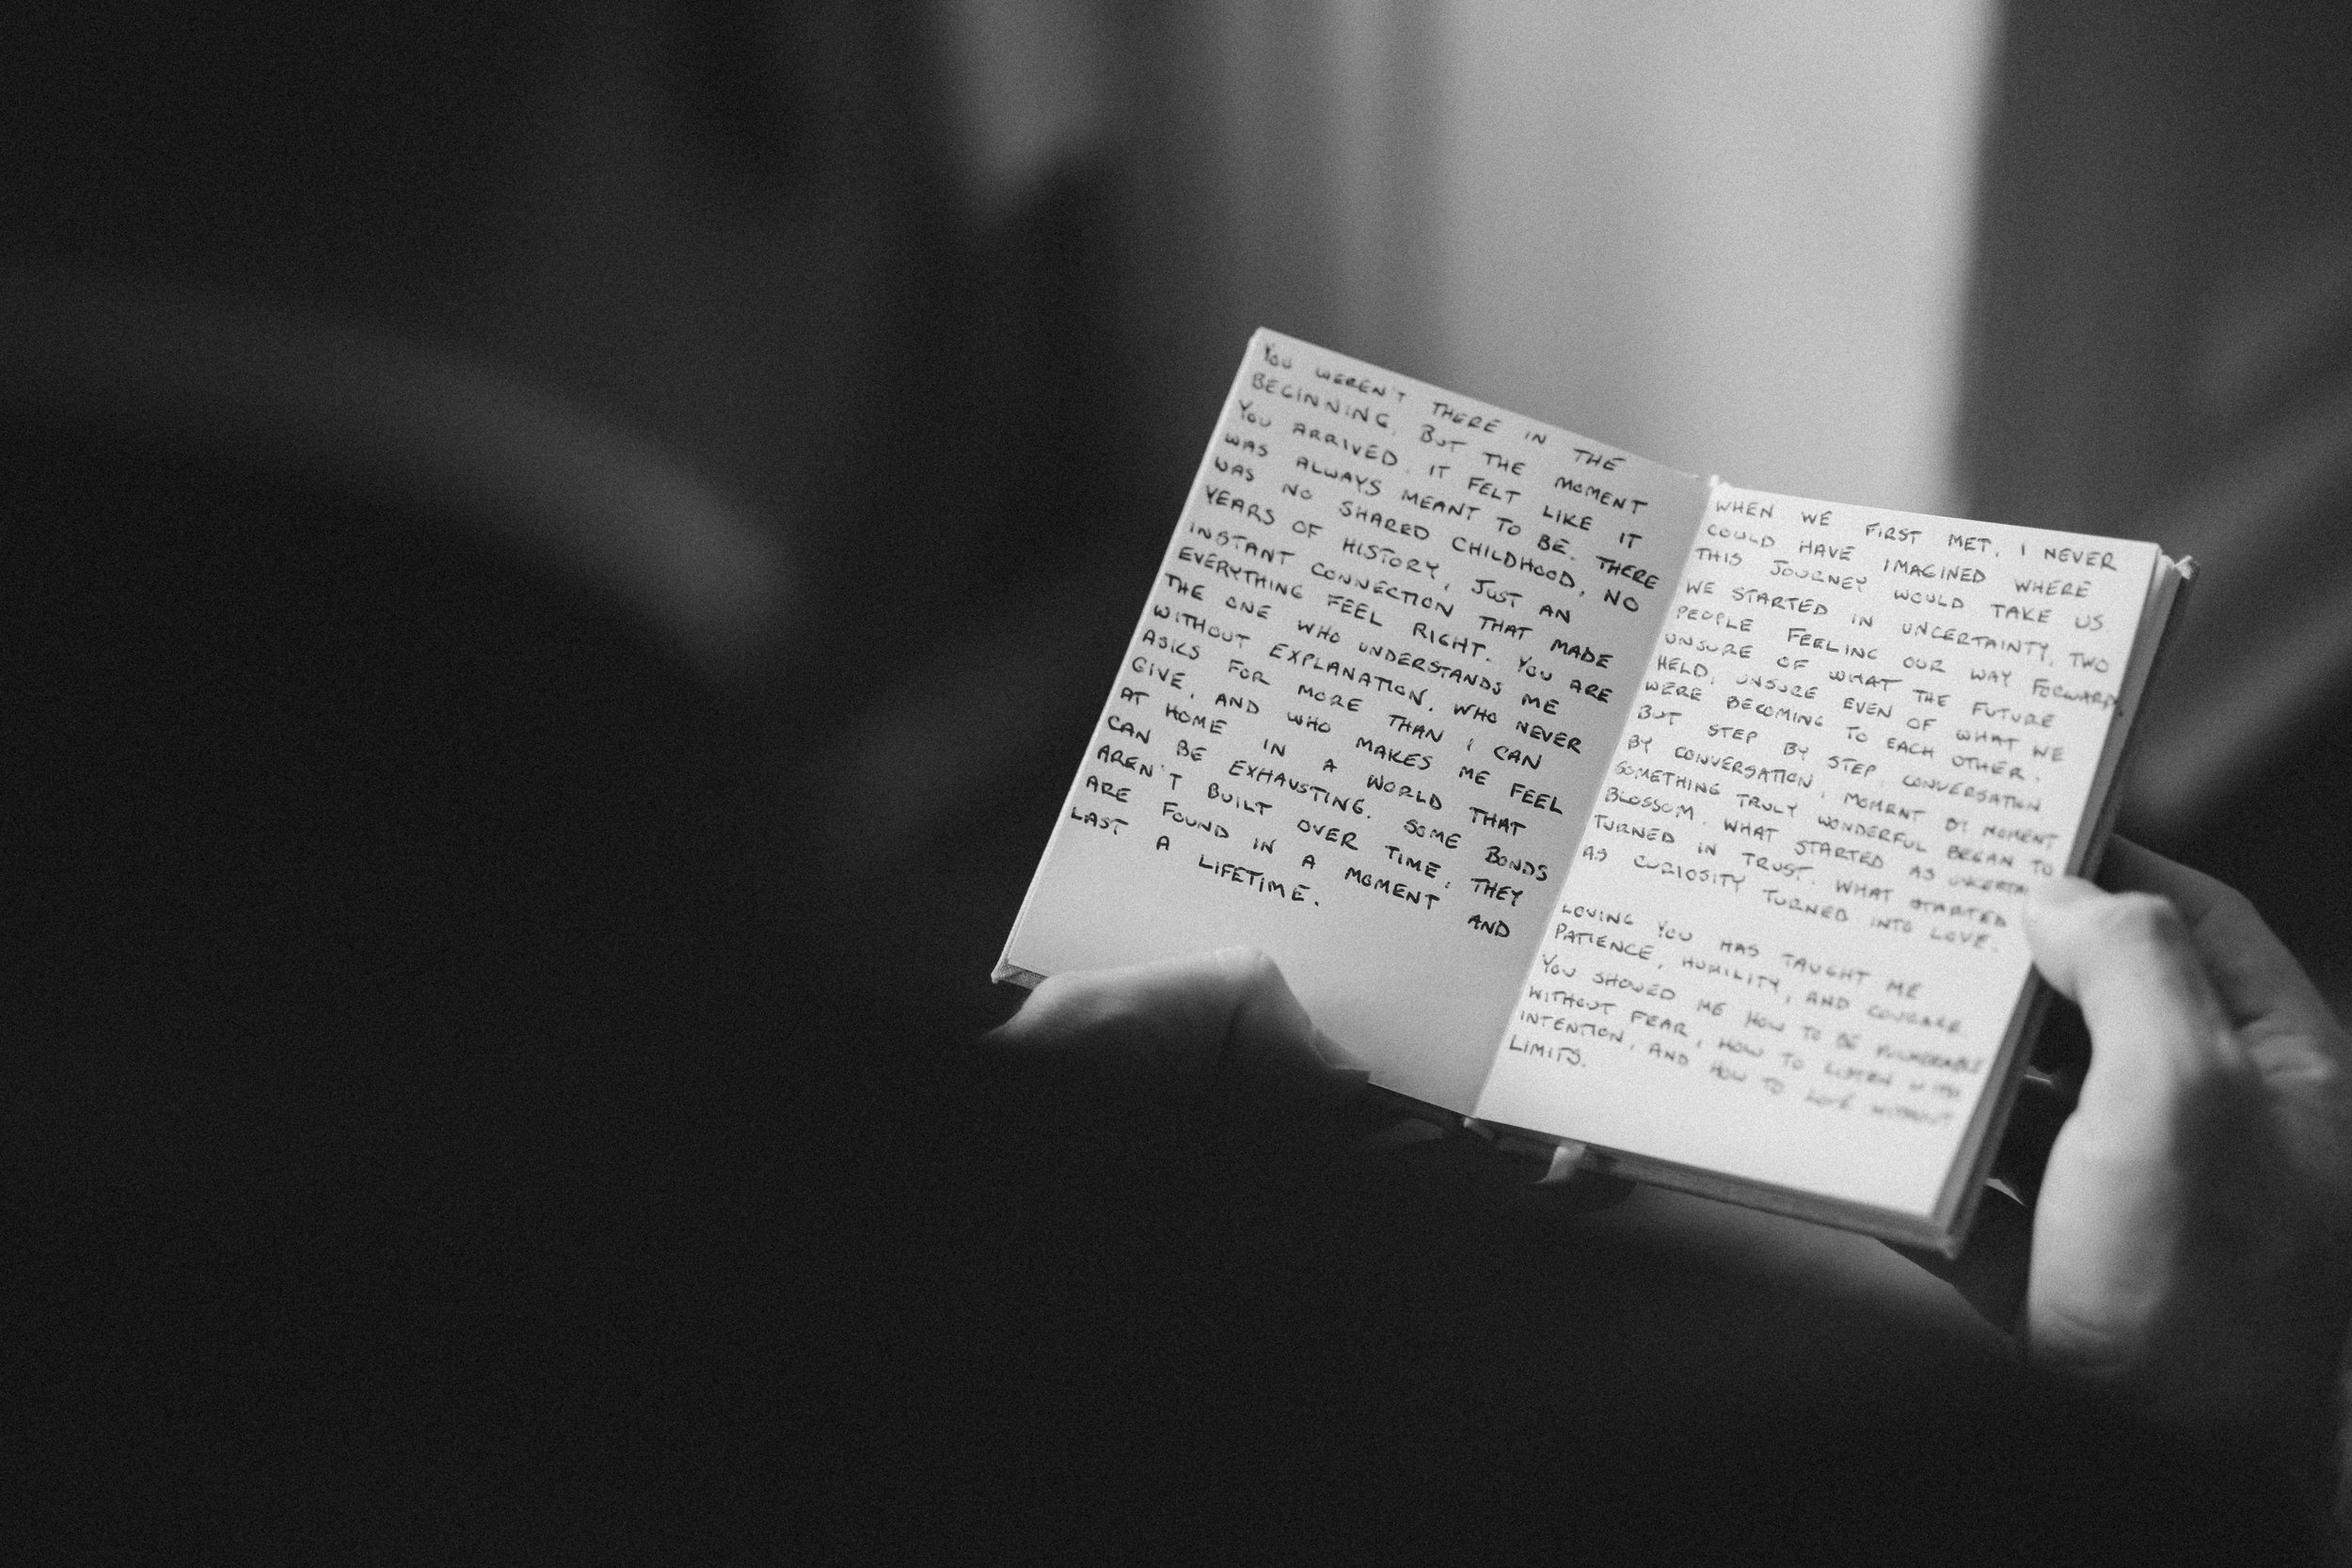 YOU WEREN'T THERE IN THE
BEGINNING, BUT THE MOMENT
YOU ARRIVED. IT FELT LIKE IT
WAS ALWAYS MEANT TO BE. THERE
WAS NO SHARED CHILDHOOD, NO
YEARS OF HISTORY, JUST AN
INSTANT CONNECTION THAT MADE
EVERYTHING FEEL RIGHT. YOU ARE
THE ONE WHO UNDERSTANDS ME
WITHOUT EXPLANATION. WHO NEVER
ASKS FOR MORE THAN I CAN
GIVE, AND WHO MAKES ME FEEL
AT HOME IN A WORLD THAT
CAN BE EXHAUSTING. SOME BONDS
AREN'T BUILT OVER TIME, THEY
ARE FOUND IN A MOMENT AND
LAST A LIFETIME.
WHEN WE FIRST MET, I NEVER
COULD HAVE IMAGINED WHERE
THIS JOURNEY WOULD TAKE US
WE STARTED IN UNCERTAINTY, TWO
PEOPLE FEELING OUR WAY FORWARD,
UNSURE OF WHAT THE FUTURE
HELD, UNSURE EVEN OF WHAT WE
WERE BECOMING TO EACH OTHER.
BUT STEP BY STEP, CONVERSATION
BY CONVERSATION, MOMENT BY MOMENT
SOMETHING TRULY WONDERFUL BEGAN TO
BLOSSOM. WHAT STARTED AS
TURNED IN TRUST. WHAT STARTED
AS CURIOSITY TURNED INTO LOVE.
LOVING YOU HAS TAUGHT ME
PATIENCE, HUMILITY, AND COURAGE.
YOU SHOWED ME HOW TO BE VULNERABLE
WITHOUT FEAR, HOW TO LISTEN WITH
INTENTION, AND HOW TO LOVE WITHOUT
LIMITS.